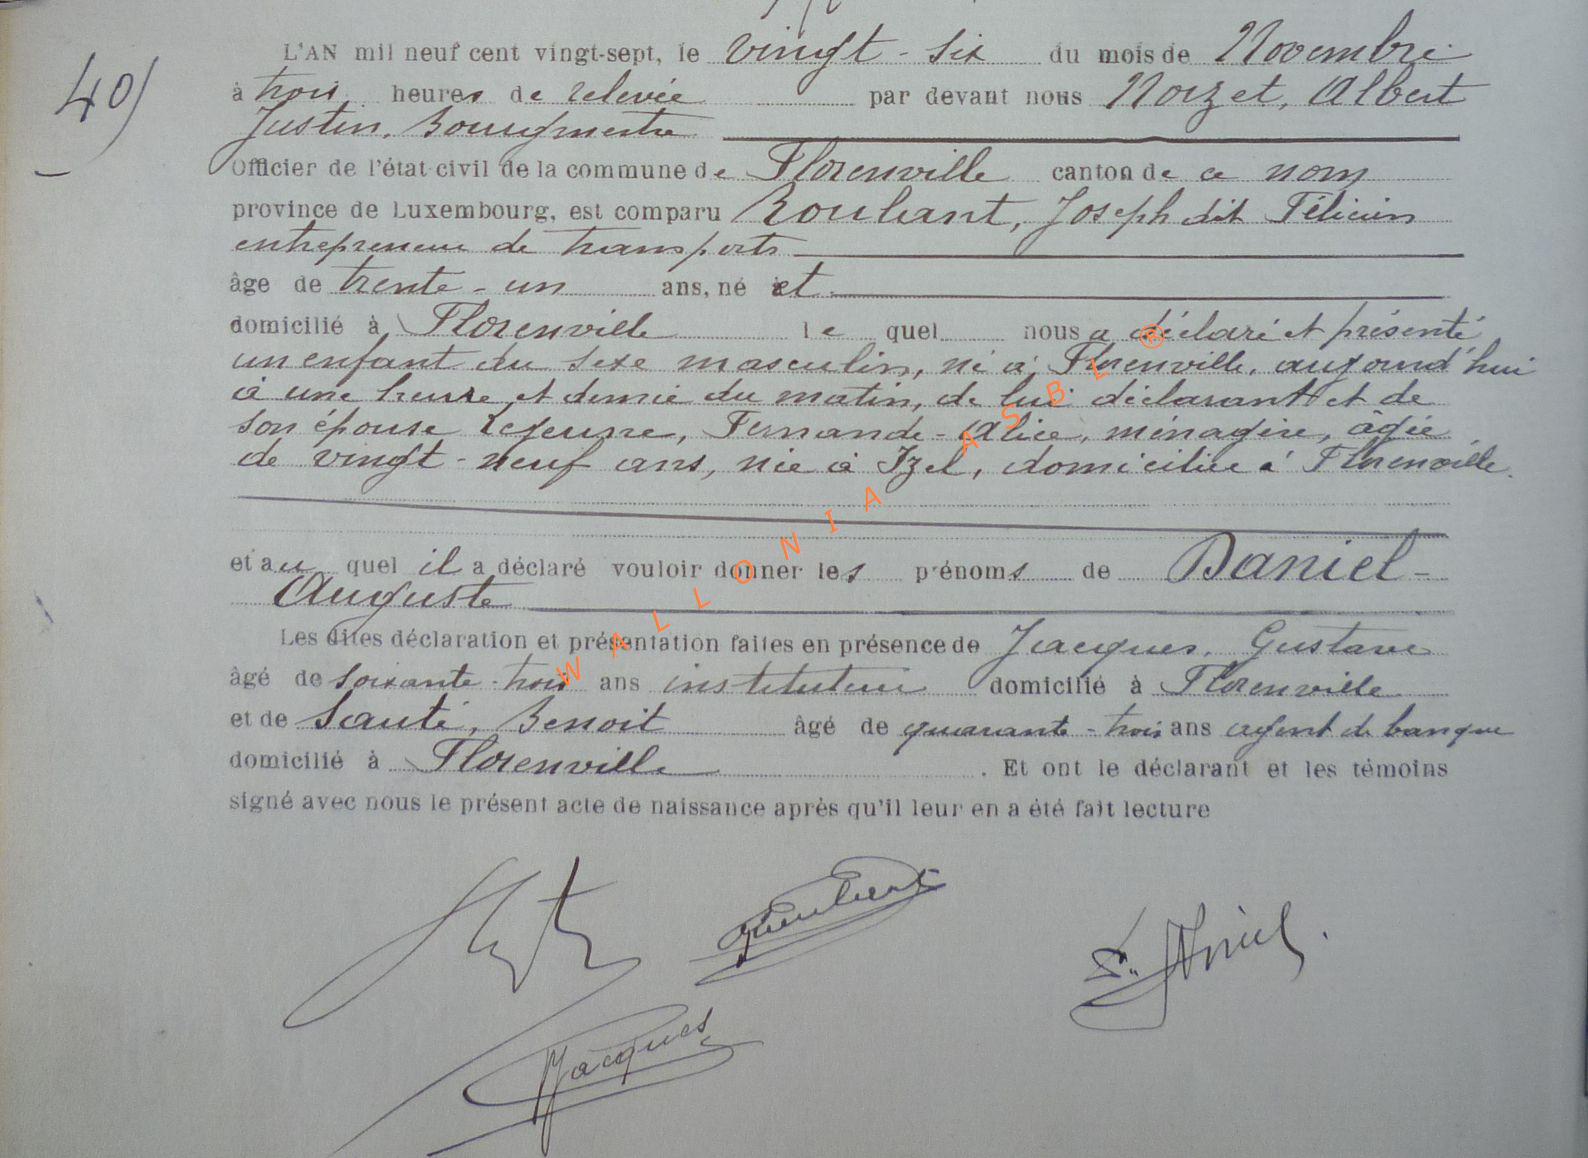 40)
L'AN mil neuf cent vingt-sept, le vingt-six du mois de Novembre
à trois heures de relevée par devant nous Noizet, Albert
Justin, Bourgmestre
Officier de l'état civil de la commune de Florenville canton de ce nom
province de Luxembourg, est comparu Roulant, Joseph dit Félicien
entrepreneur de transports
âge de trente-un ans, né et
domicilié à Florenville le quel nous a déclaré et présenté
un enfant du sexe masculin, né à Florenville, aujourd'hui
à une heure et demie du matin, de lui déclarant et de
son épouse Lejeune, Fernande-Alice, ménagère, âgée
de vingt-neuf ans, née à Izel, domiciliée à Florenville.
et au quel il a déclaré vouloir donner les prénoms de Daniel-
Auguste
Les dites déclaration et présentation faites en présence de Jacques, Gustave
âgé de soixante-trois ans instituteur domicilié à Florenville
et de Santé, Benoit âgé de quarante-trois ans agent de banque
domicilié à Florenville. Et ont le déclarant et les témoins
signé avec nous le présent acte de naissance après qu'il leur en a été fait lecture
Jacques
WALLONIA ASBL ®